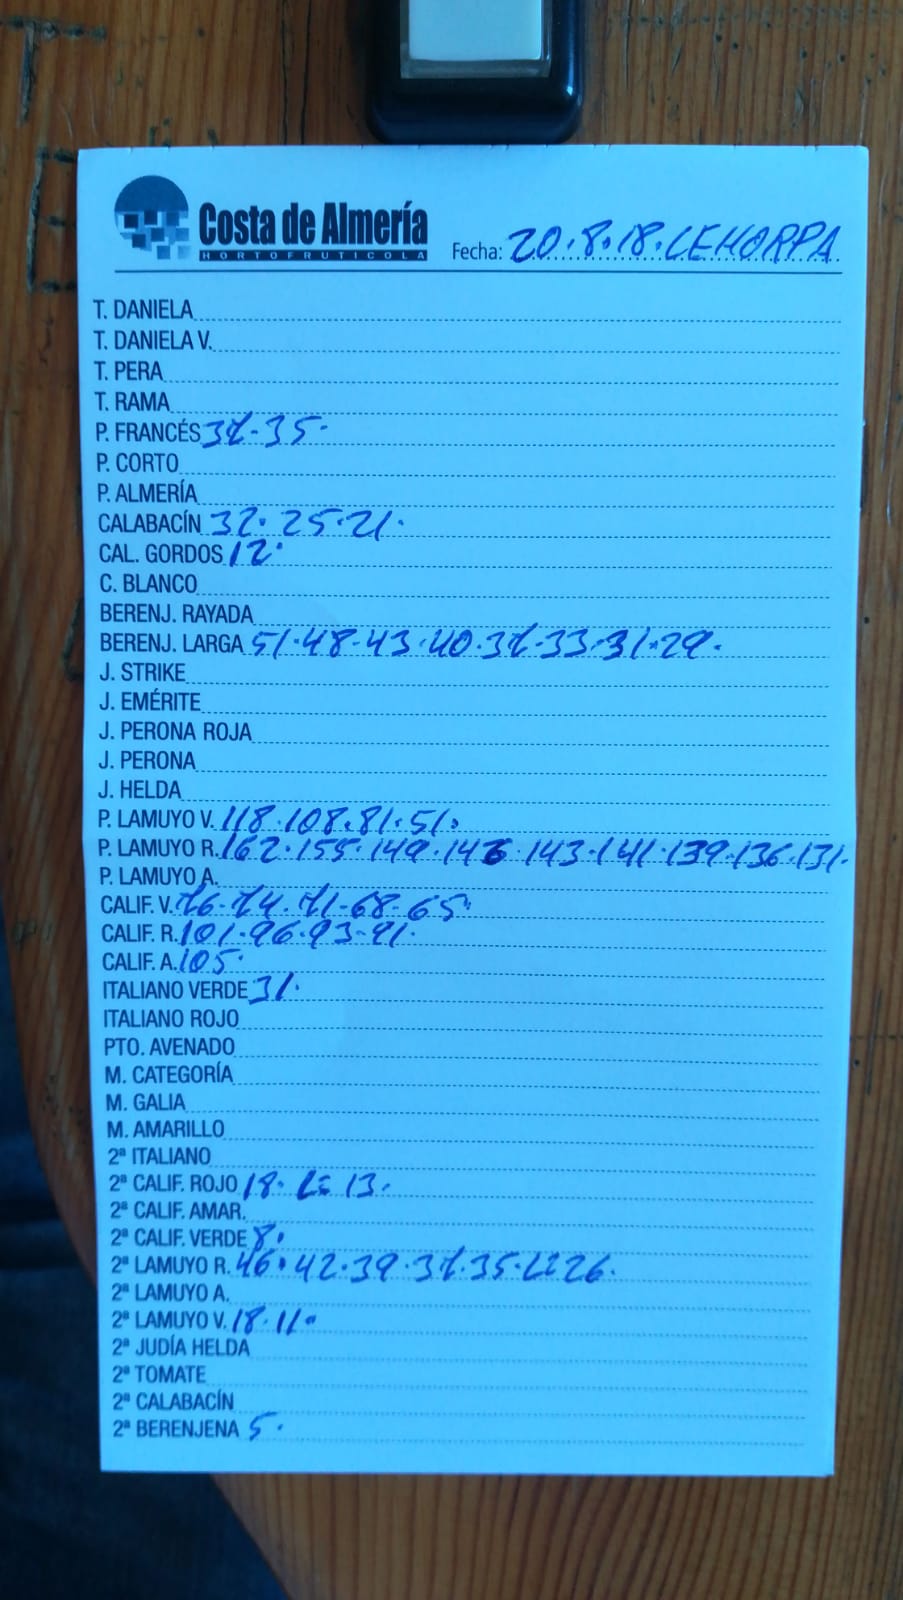 Costa de Almería
HORTOFRUTICOLA
Fecha: 20.8.18. CEHORPA
T. DANIELA
T. DANIELA V.
T. PERA
T. RAMA
P. FRANCÉS 37.35.
P. CORTO
P. ALMERÍA
CALABACÍN 32.25.21.
CAL. GORDOS 12.
C. BLANCO
BERENJ. RAYADA
BERENJ. LARGA 51.48.43.40.37.33.31.29.
J. STRIKE
J. EMÉRITE
J. PERONA ROJA
J. PERONA
J. HELDA
P. LAMUYO V. 118.108.81.51.
P. LAMUYO R. 162.155.149.146.143.141.139.136.131.
P. LAMUYO A.
CALIF. V. 76.74.71.68.65.
CALIF. R. 101.96.93.91.
CALIF. A. 105.
ITALIANO VERDE 31.
ITALIANO ROJO
PTO. AVENADO
M. CATEGORÍA
M. GALIA
M. AMARILLO
2ª ITALIANO
2ª CALIF. ROJO 18. 13.
2ª CALIF. AMAR.
2ª CALIF. VERDE 8.
2ª LAMUYO R. 46.42.39.37.35. 26.
2ª LAMUYO A.
2ª LAMUYO V. 18.11.
2ª JUDÍA HELDA
2ª TOMATE
2ª CALABACÍN
2ª BERENJENA 5.